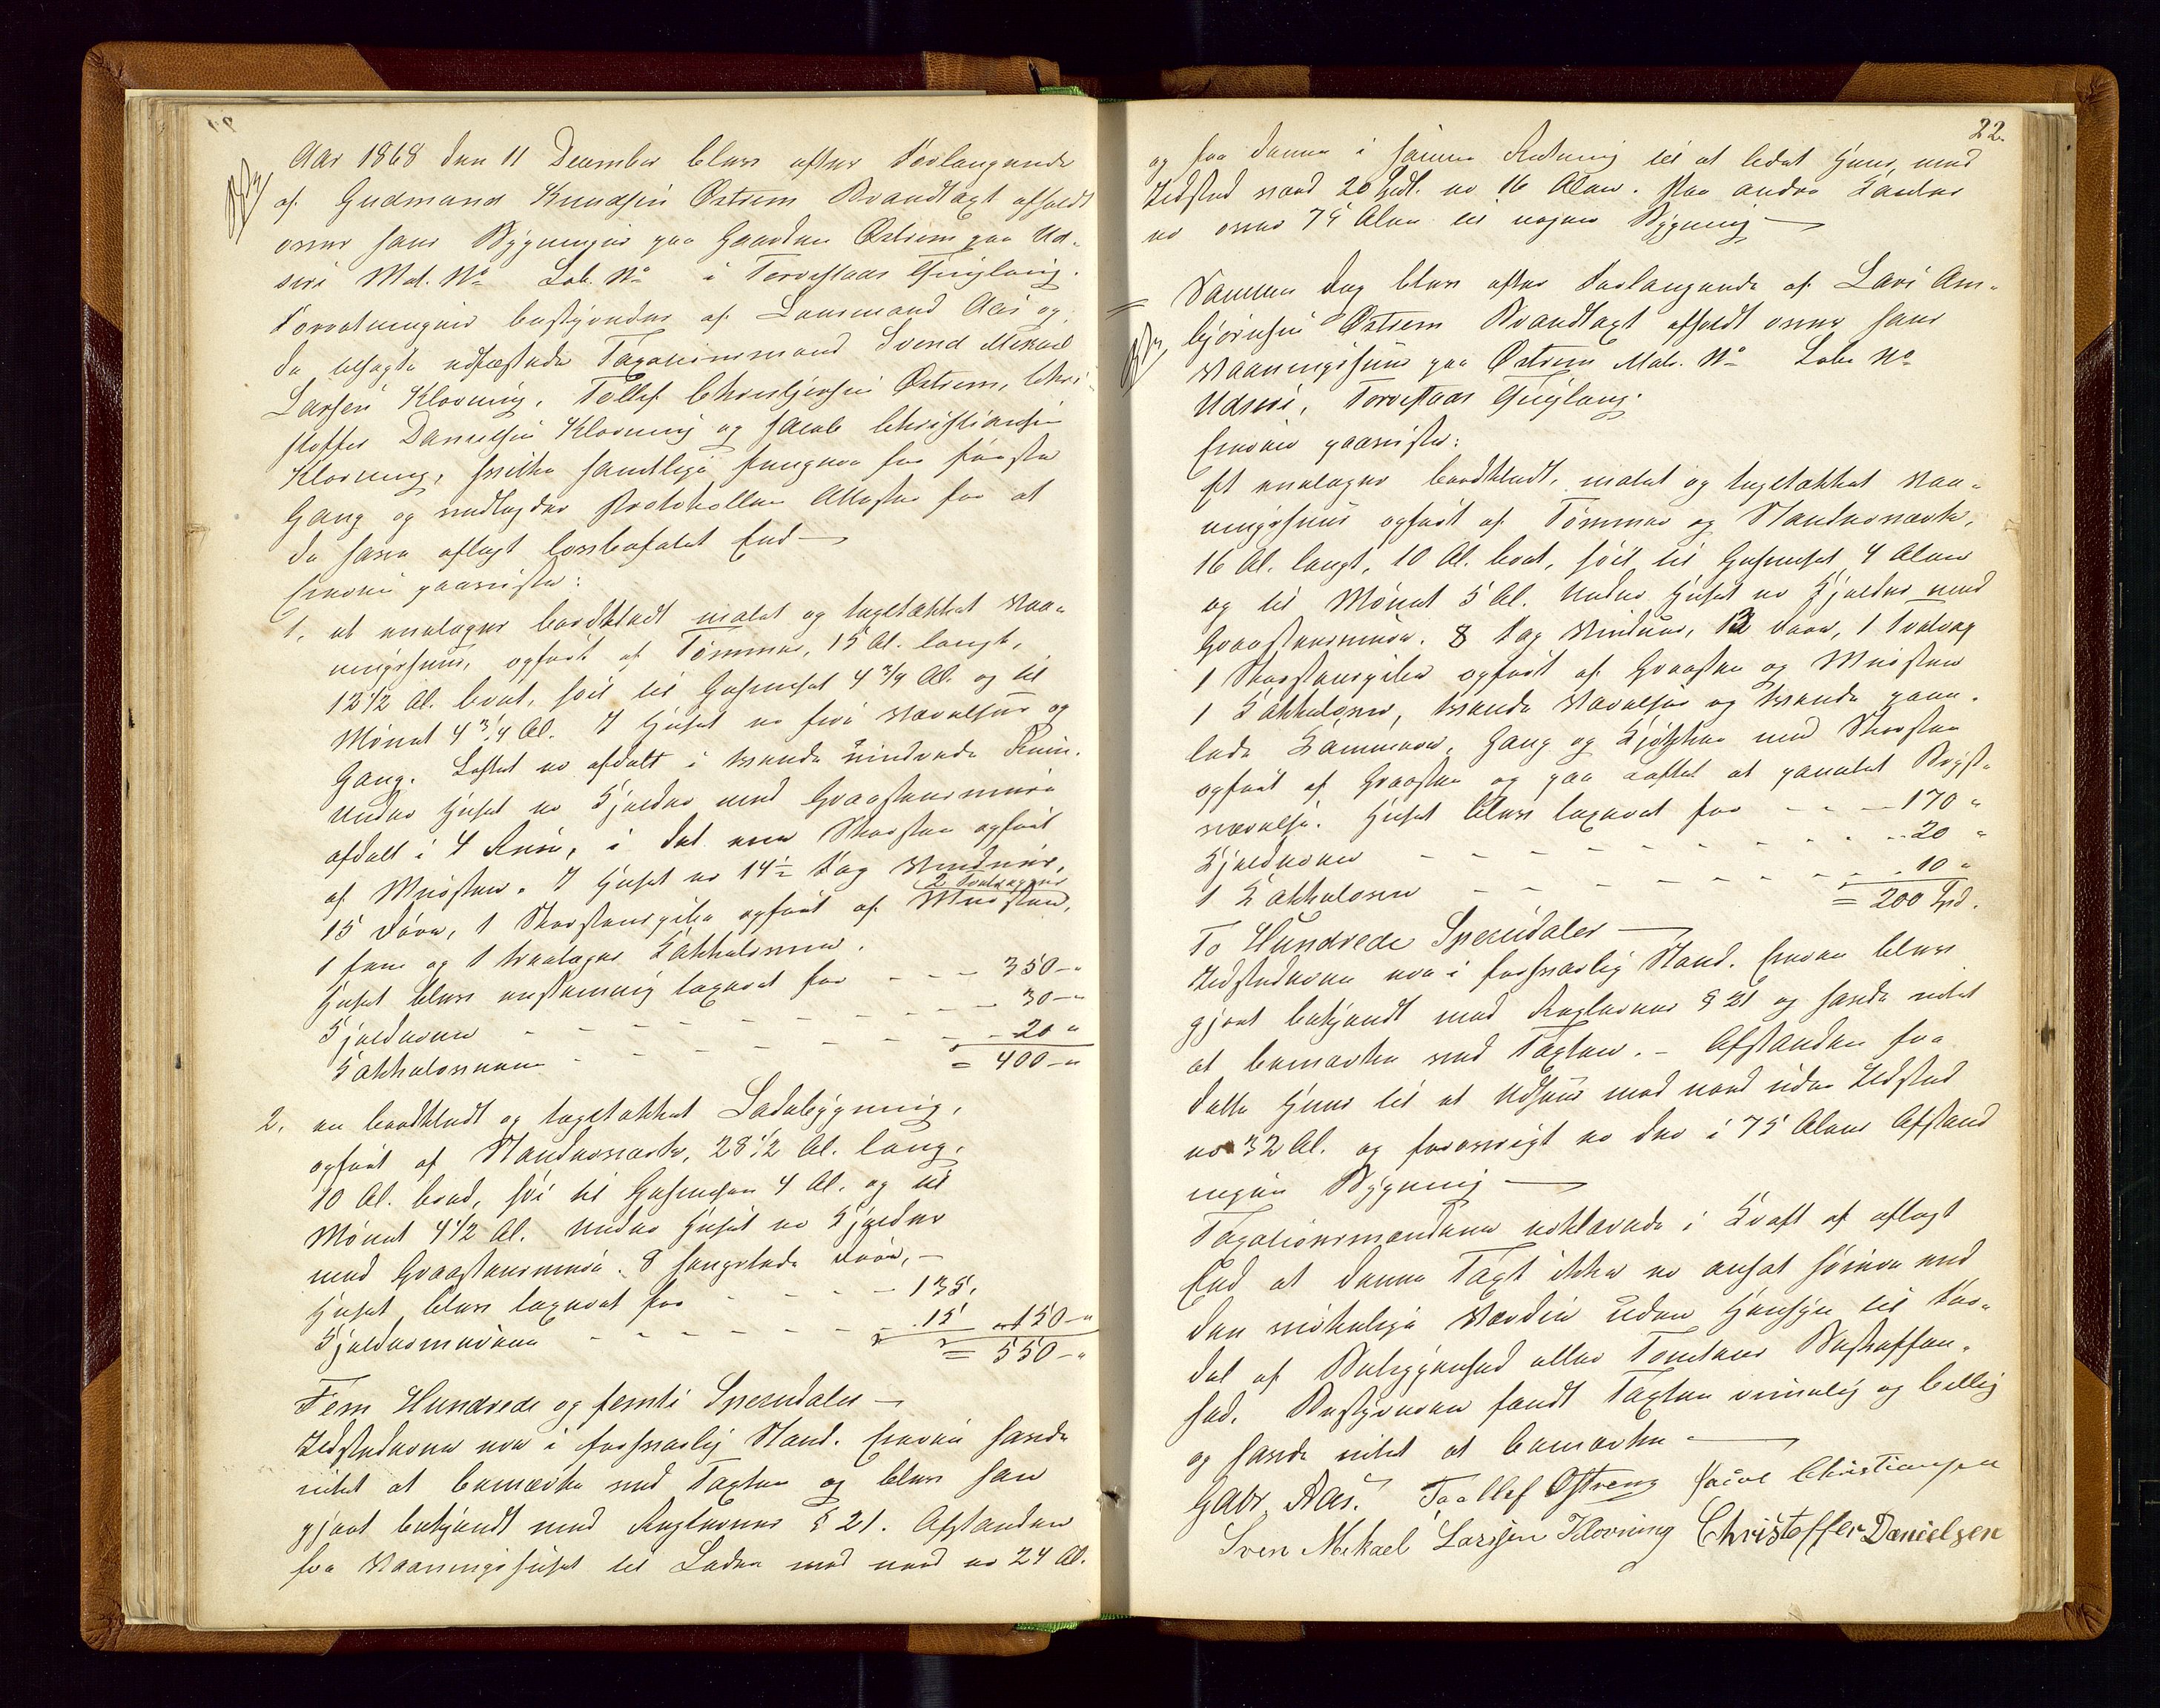 Aar 1868 den 11 December blev efter Forlangende
af Gudmand Knudsen Østrem Brandtaxt afholdt
over hans Bygninger paa Gaarden Østrem paa Ud-
sire Mat. No Løb. No i Torvestads Thinglaug.
Forretningen bestyredes af Lensmand Aas og
de tilsagte edfæstede Taxationsmænd Svend Mikael
Larsen Klovning, Tollef Christjensen Østrem, Chri-
stoffer Danielsen Klovning og Jacob Christiansen
Klovning, hvilke samtlige fungere for første
Gang og vedlægges Protokollen Attester for at
de have aflagt lovbefalet Eed —
Eieren paaviste:
1. et eenlages bordklædt malet og tegltækket Vaa-
ningshuus, opført af Tømmer, 15 Al. langt,
12 1/2 Al. bredt, høit til Gesimset 4 3/4 Al. og til
Mønet 4 3/4 Al. I Huset er fire Værelser og
Gang. Loftet er afdelt i trende indrede Rum.
Under Huset er Kjelder med Graasteensmure
afdelt i 4 Rum, i det ene Skorsteen opført
af Muursten. I Huset er 14 1/2 Fag Vinduer,
2 Trætrapper
15 Døre, 1 Skorsteenspibe opført af Muursten,
1 een og 1 treetages Kakkelovne.
Huset blev eenstemmig taxeret for - - - 350 - "
Kjelderen - - - - - - - - 30 - "
Kakkelovnene - - - - - - - 20 "
= 400 - "
2. en bordklædt og tegltækket Ladebygning,
opført af Standerværk, 28 1/2 Al. lang,
10 Al. bred, høi til Gesimsen 4 Al. og til
Mønet 4 1/2 Al. Under Huset er Kjelder
med Graasteensmure. 8 hængslede Døre, —
Huset blev taxeret for - - - - 135,
Kjeldermurene - - - - - 15 150 - "
= 550 - "
Fem Hundrede og femti Speciedaler —
Ildstederne ere i forsvarlig Stand. Eieren havde
intet at bemærke ved Taxten og blev han
gjort bekjendt med Reglernes § 21. Afstanden
fra Vaaningshuset til Laden mod nord er 24 Al.
22.
og fra denne i samme Retning til et lidet Huus, med
Ildsted værd 20 Spdl. er 16 Alen. Paa andre Kanter
er over 75 Alen til nogen Bygning —
Samme Dag blev efter Forlangende af Lars Am-
bjørnsen Østrem Brandtaxt afholdt over hans
Vaaningshuus paa Østrem Matr. No Løbe No
Udsire, Torvestads Thinglaug.
Eieren paaviste:
Et eenlages bordklædt, malet og tegltækket Vaa-
ningshuus opført af Tømmer og Standerværk,
16 Al. langt, 10 Al. bredt, høit til Gesimset 4 Alen
og til Mønet 5 Al. Under Huset er Kjelder med
Graasteensmure. 8 Fag Vinduer, 12 Døre, 1 Trætrap
1 Skorsteenspibe opført af Graasten og Muursten
1 Kakkelovn, trende Værelser og trende pane-
lede Kammere, Gang og Kjøkken med Skorsteen
opført af Graasten og paa Loftet et panelet Bryst-
værelse. Huset blev taxeret for - - - 170 "
Kjelderen - - - - - - - - 20 "
1 Kakkelovn - - - - - - - 10 "
= 200 Spd.
To Hundrede Speciedaler —
Ildstederne ere i forsvarlig Stand. Eieren blev
gjort bekjendt med Reglernes § 21 og havde intet
at bemærke ved Taxten. - Afstanden fra
dette Huus til et Udhuus mod nord uden Ildsted
er 32 Al. og forøvrigt er der i 75 Alens Afstand
ingen Bygning —
Taxationsmændene erklærede i Kraft af aflagt
Eed at denne Taxt ikke er ansat høiere end
den virkelige Værdie uden Hensyn til For-
del af Beliggenhed eller Tomtens Beskaffen-
hed. Bestyreren fandt Taxten rimelig og billig
og havde intet at bemærke —
Gabr. Aas. Tollef Østrem Jacob Christiansen
Sven Mekael Larsen Klovning Christoffer Danielsen